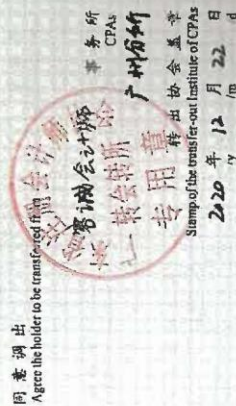 同意调出
Agree the holder to be transferred from
会计师
事务所
CPAs
广州分所
转会转所
专用章
转出协会盖章
Stamp of the transfer-out Institute of CPAs
2020 年 12 月 22 日
/y /m /d